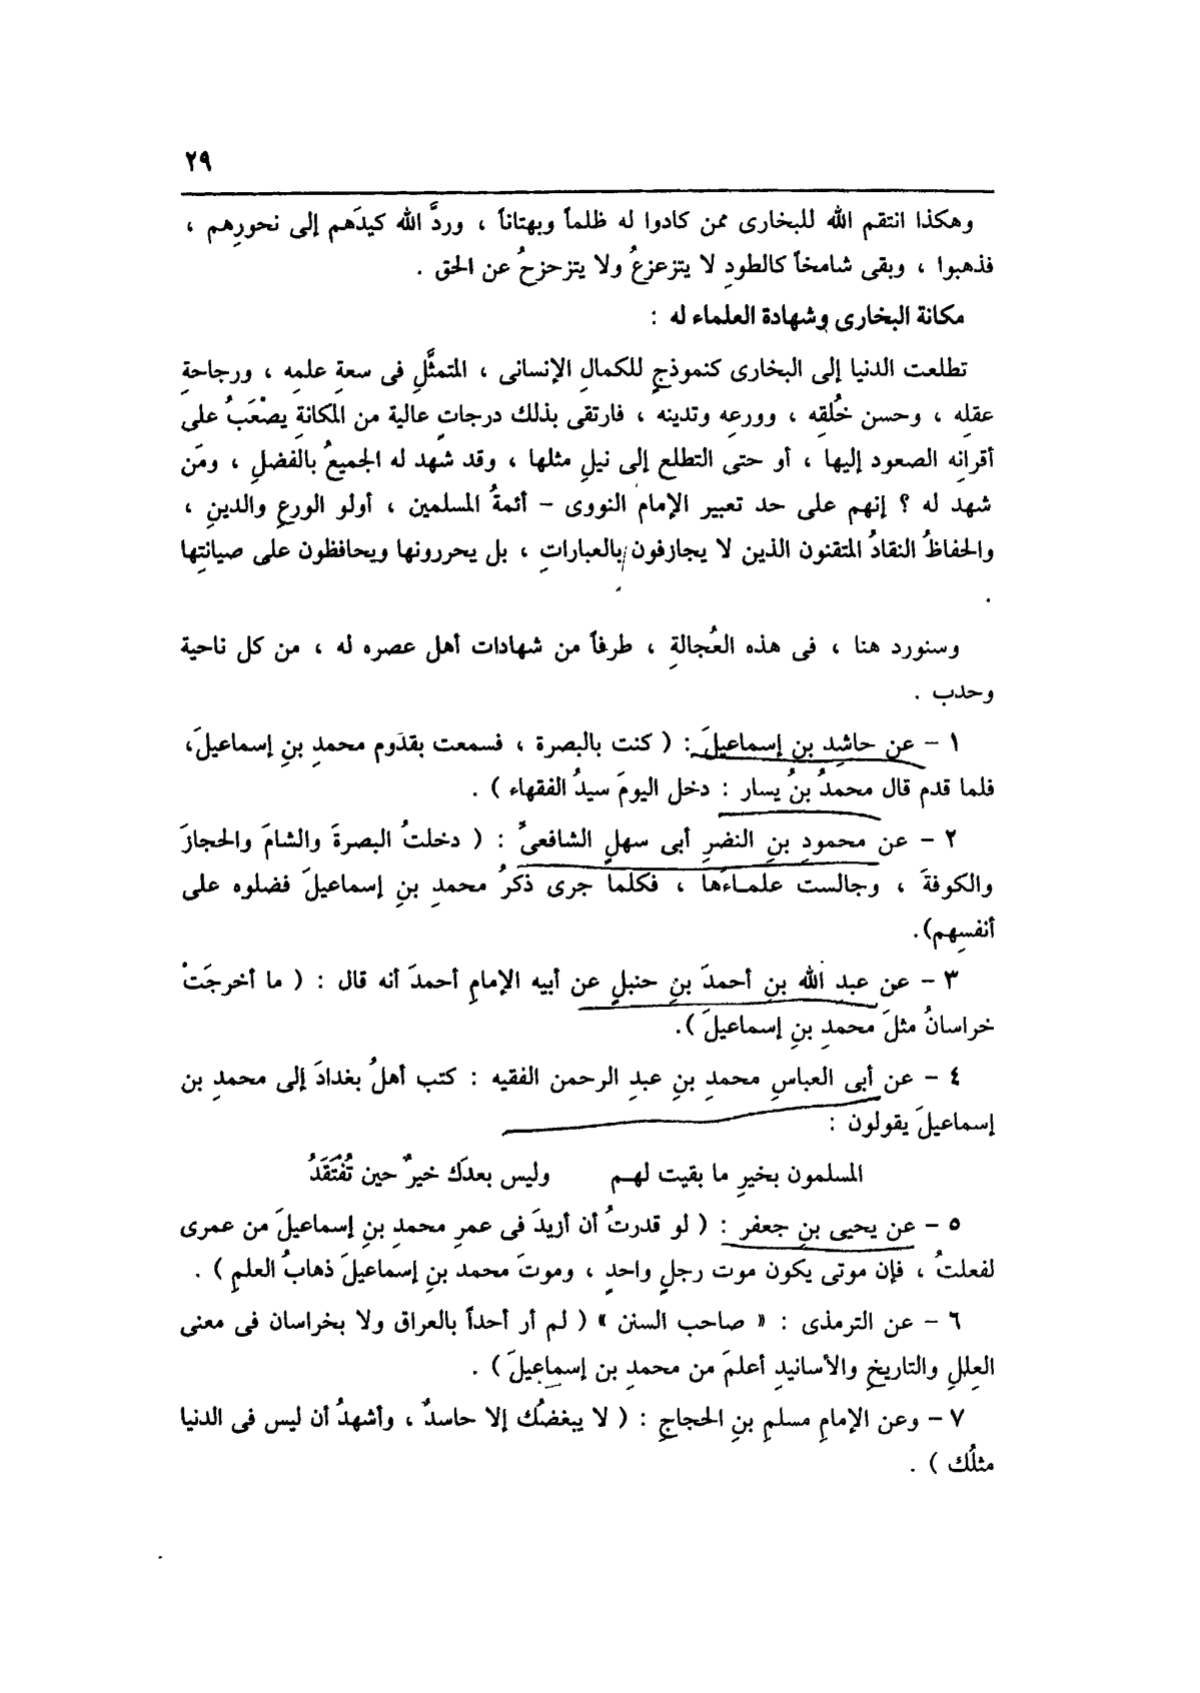 ٢٩
وهكذا انتقم الله للبخارى ممن كادوا له ظلماً وبهتاناً ، وردَّ الله كيدَهم إلى نحورِهم ،
فذهبوا ، وبقى شامخاً كالطودِ لا يتزعزعُ ولا يتزحزحُ عن الحق .
مكانة البخارى وشهادة العلماء له :
تطلعت الدنيا إلى البخارى كنموذجٍ للكمالِ الإنسانى ، المتمثَّلِ فى سعةِ علمِه ، ورجاحةِ
عقلِه ، وحسن خُلقِه ، وورعِه وتدينه ، فارتقى بذلك درجاتٍ عالية من المكانةِ يصْعَبُ على
أقرانِه الصعود إليها ، أو حتى التطلع إلى نيلِ مثلها ، وقد شهد له الجميعُ بالفضلِ ، ومَن
شهد له ؟ إنهم على حد تعبير الإمام النووى – أئمةُ المسلمين ، أولو الورعِ والدينِ ،
والحفاظُ النقادُ المتقنون الذين لا يجازفون بالعباراتِ ، بل يحررونها ويحافظون على صيانتِها
.
وسنورد هنا ، فى هذه العُجالةِ ، طرفاً من شهادات أهل عصره له ، من كل ناحية
وحدب .
١ – عن حاشِد بنِ إسماعيلَ : ( كنت بالبصرة ، فسمعت بقدَوم محمدِ بنِ إسماعيلَ،
فلما قدم قال محمدُ بنُ يسار : دخل اليومَ سيدُ الفقهاء ) .
٢ – عن محمودِ بنِ النضرِ أبى سهلٍ الشافعىِّ : ( دخلتُ البصرةَ والشامَ والحجازَ
والكوفةَ ، وجالست علمـاءَها ، فكلما جرى ذكرُ محمدِ بنِ إسماعيلَ فضلوه على
أنفسِهم).
٣ – عن عبدِ الله بنِ أحمدَ بنِ حنبلٍ عن أبيه الإمامِ أحمدَ أنه قال : ( ما أخرجَتْ
خراسانُ مثلَ محمدِ بنِ إسماعيلَ ).
٤ – عن أبى العباسِ محمدِ بنِ عبدِ الرحمن الفقيه : كتب أهلُ بغدادَ إلى محمدِ بن
إسماعيلَ يقولون :
المسلمون بخيرِ ما بقيت لهـم وليس بعدَك خيرٌ حين تُفْتَقَدُ
٥ – عن يحيى بنِ جعفر : ( لو قدرتُ أن أزيدَ فى عمرِ محمدِ بنِ إسماعيلَ من عمرى
لفعلتُ ، فإن موتى يكون موت رجلٍ واحدٍ ، وموتَ محمد بنِ إسماعيلَ ذهابُ العلمِ ) .
٦ – عن الترمذى : « صاحب السنن » ( لم أر أحداً بالعراق ولا بخراسان فى معنى
العِللِ والتاريخِ والأسانيدِ أعلمَ من محمدِ بن إسماعيلَ ) .
٧ – وعن الإمامِ مسلمِ بنِ الحجاجِ : ( لا يبغضُك إلا حاسدٌ ، وأشهدُ أن ليس فى الدنيا
مثلُك ) .